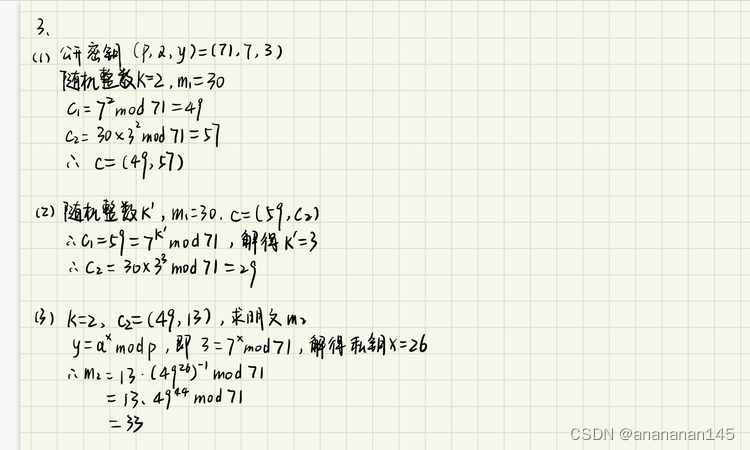 3、
(1) 公开密钥 (P,2,y)=(71,7,3)
随机整数K=2, m₁=30
C₁=7² mod 71=49
C₂=30×3² mod 71=57
∴ C=(49,57)
(2) 随机整数K', m₁=30. C=(59,C₂)
∴C₁=59=7^K' mod 71, 解得K'=3
∴C₂=30×3³ mod 71=29
(3) K=2, C₂=(49,13), 求明文m₂
y=a^x mod p, 即 3=7^x mod 71, 解得私钥x=26
∴m₂=13·(49²⁶)⁻¹ mod 71
=13、49⁴⁴ mod 71
=33
CSDN @anananan145